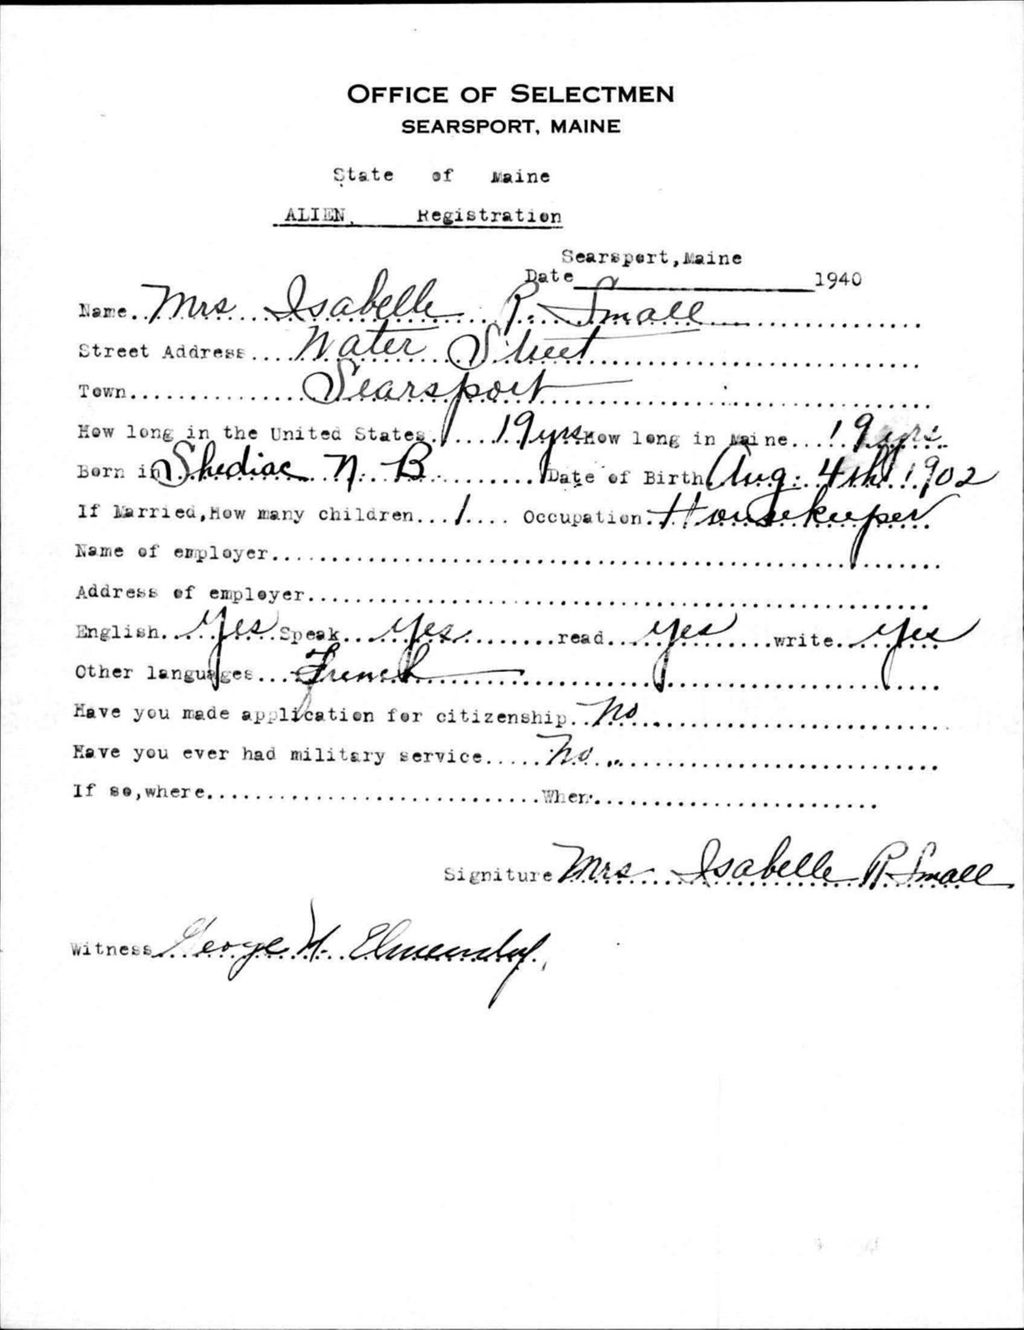 OFFICE OF SELECTMEN
SEARSPORT, MAINE
State of Maine
ALIEN. Registration
Searsport, Maine
Date ____________ 1940
Name. Mrs Isabelle R. Small
Street Address.... Water Street
Town............... Searsport
How long in the United States. 19 yrs How long in Maine... 19 yrs
Born in Shediac N. B. Date of Birth Aug. 4th 1902
If Married, How many children...1.... Occupation. Housekeeper
Name of employer
Address of employer
English. Yes Speak.. Yes read.. Yes write. Yes
Other languages... French
Have you made application for citizenship. No
Have you ever had military service..... No
If so, where............................When
Signiture Mrs. Isabelle R Small
Witness George W. Elmendorf